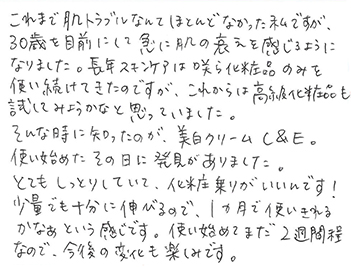 これまで肌トラブルなんてほとんどなかった私ですが、
30歳を目前にして急に肌の衰えを感じるように
なりました。長年スキンケアは咲ら化粧品のみを
使い続けてきたのですが、これからは高級化粧品も
試してみようかなと思っていました。
そんな時に知ったのが、美白クリーム C&E。
使い始めたその日に発見がありました。
とてもしっとりしていて、化粧乗りがいいんです!
少量でも十分に伸びるので、1ヵ月で使いきれる
かなぁという感じです。使い始めてまだ2週間程
なので、今後の変化も楽しみです。